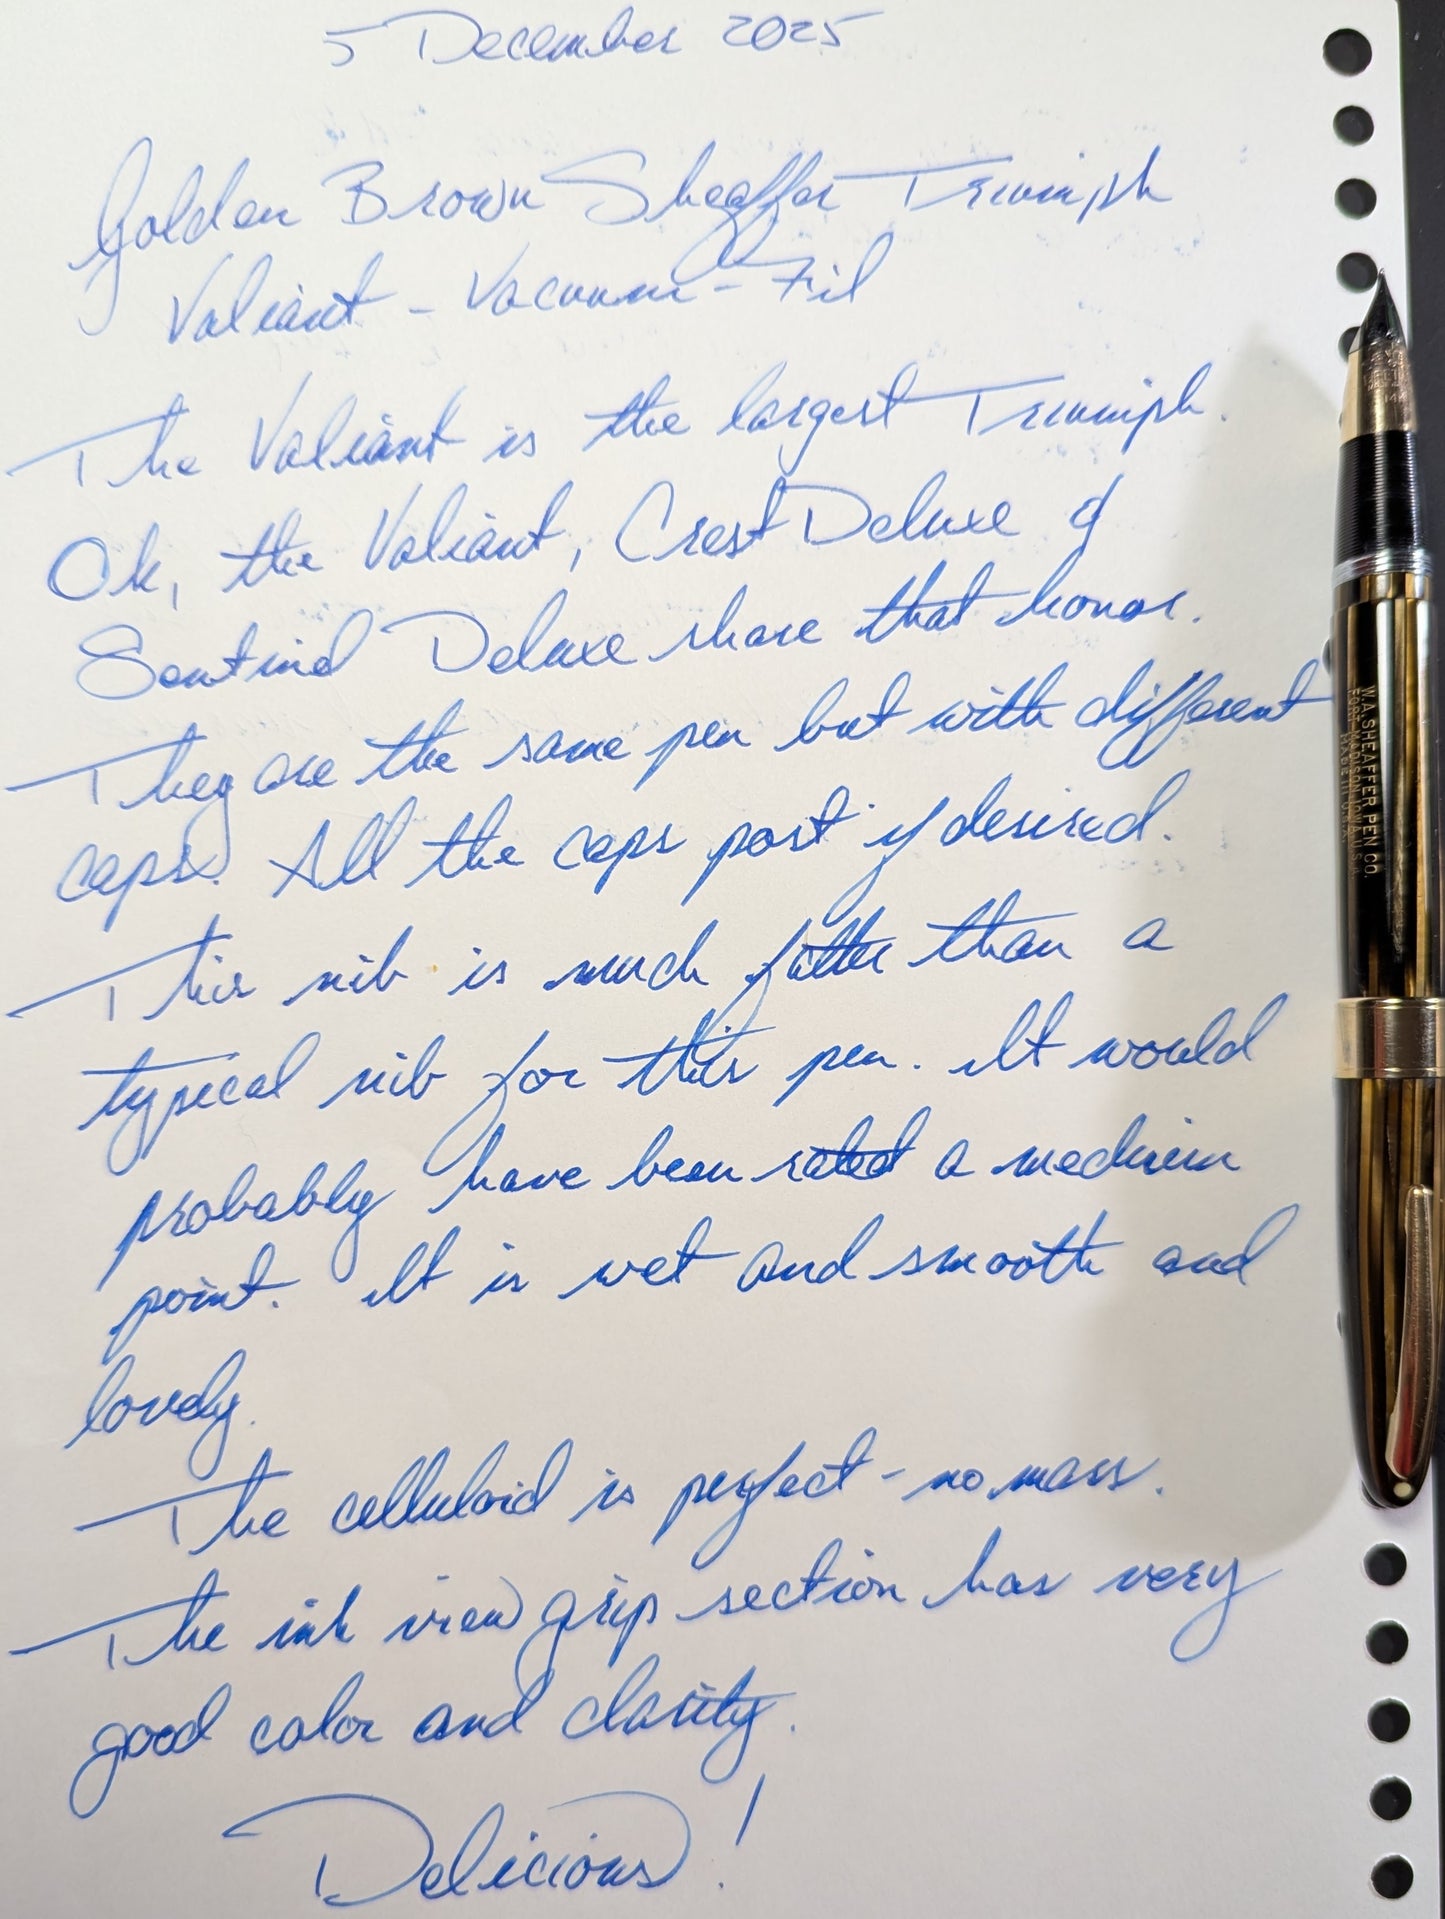 5 December 2025
Golden Brown Sheaffer Triumph
Valiant - Vacuum-Fil
The Valiant is the largest Triumph.
Ok, the Valiant, Crest Deluxe &
Sentinel Deluxe share that honor.
They are the same pen but with different
caps. All the caps post if desired.
This nib is much fatter than a
typical nib for this pen. It would
probably have been rated a medium
point. It is wet and smooth and
lovely.
The celluloid is perfect - no mass.
The ink view grip section has very
good color and clarity.
Delicious!
W.A. SHEAFFER PEN CO.
FORT MADISON, IOWA, U.S.A.
MADE IN U.S.A.